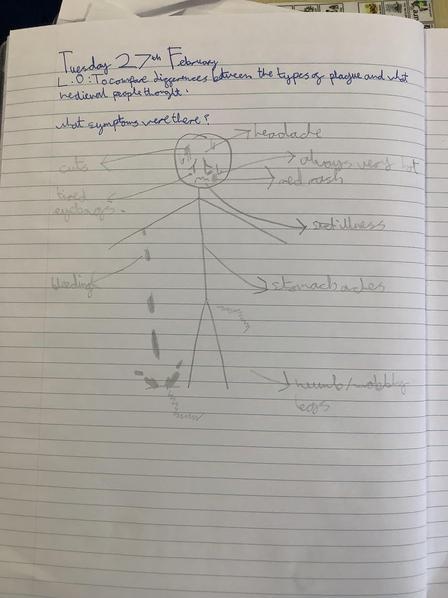 Tuesday 27th February
L.O: To compare differences between the types of plague and what
medieval people thought.
what symptoms were there?
headache
cuts
always very hot
red rash
tired
eyebags.
stillness
bleeding
stomach aches
numb/wobbly
legs